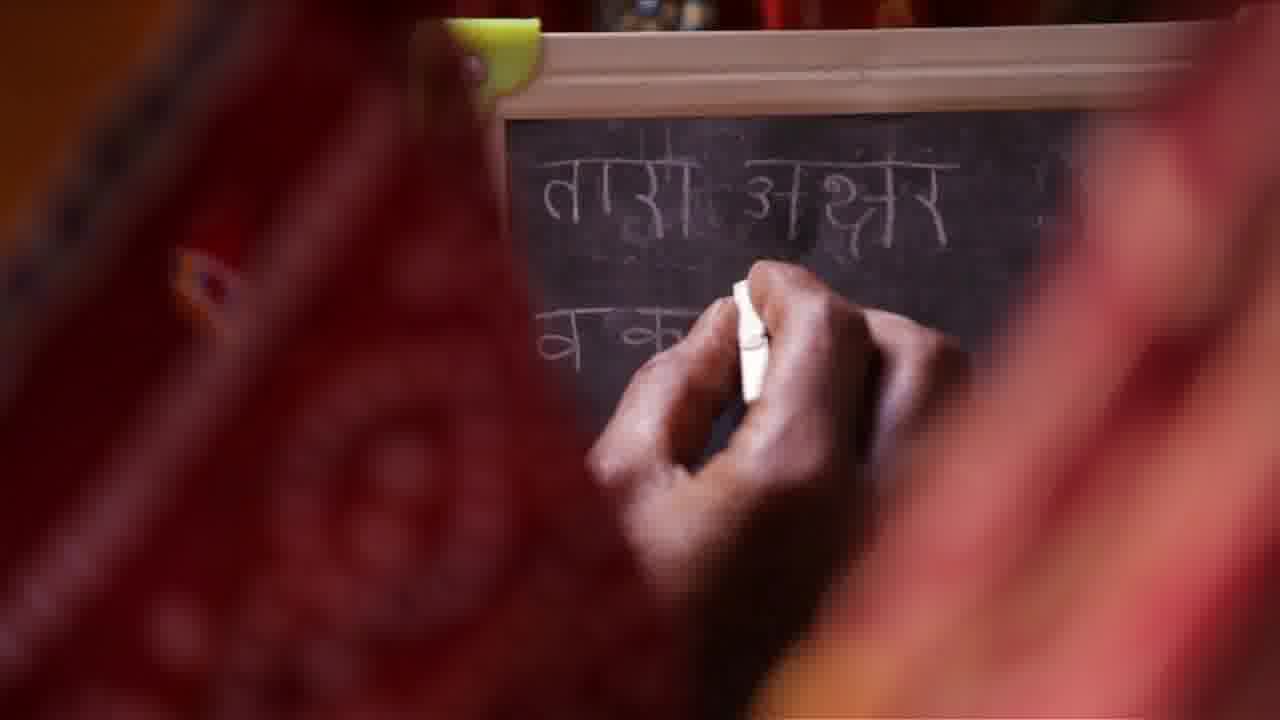 तारा अक्षर
व क